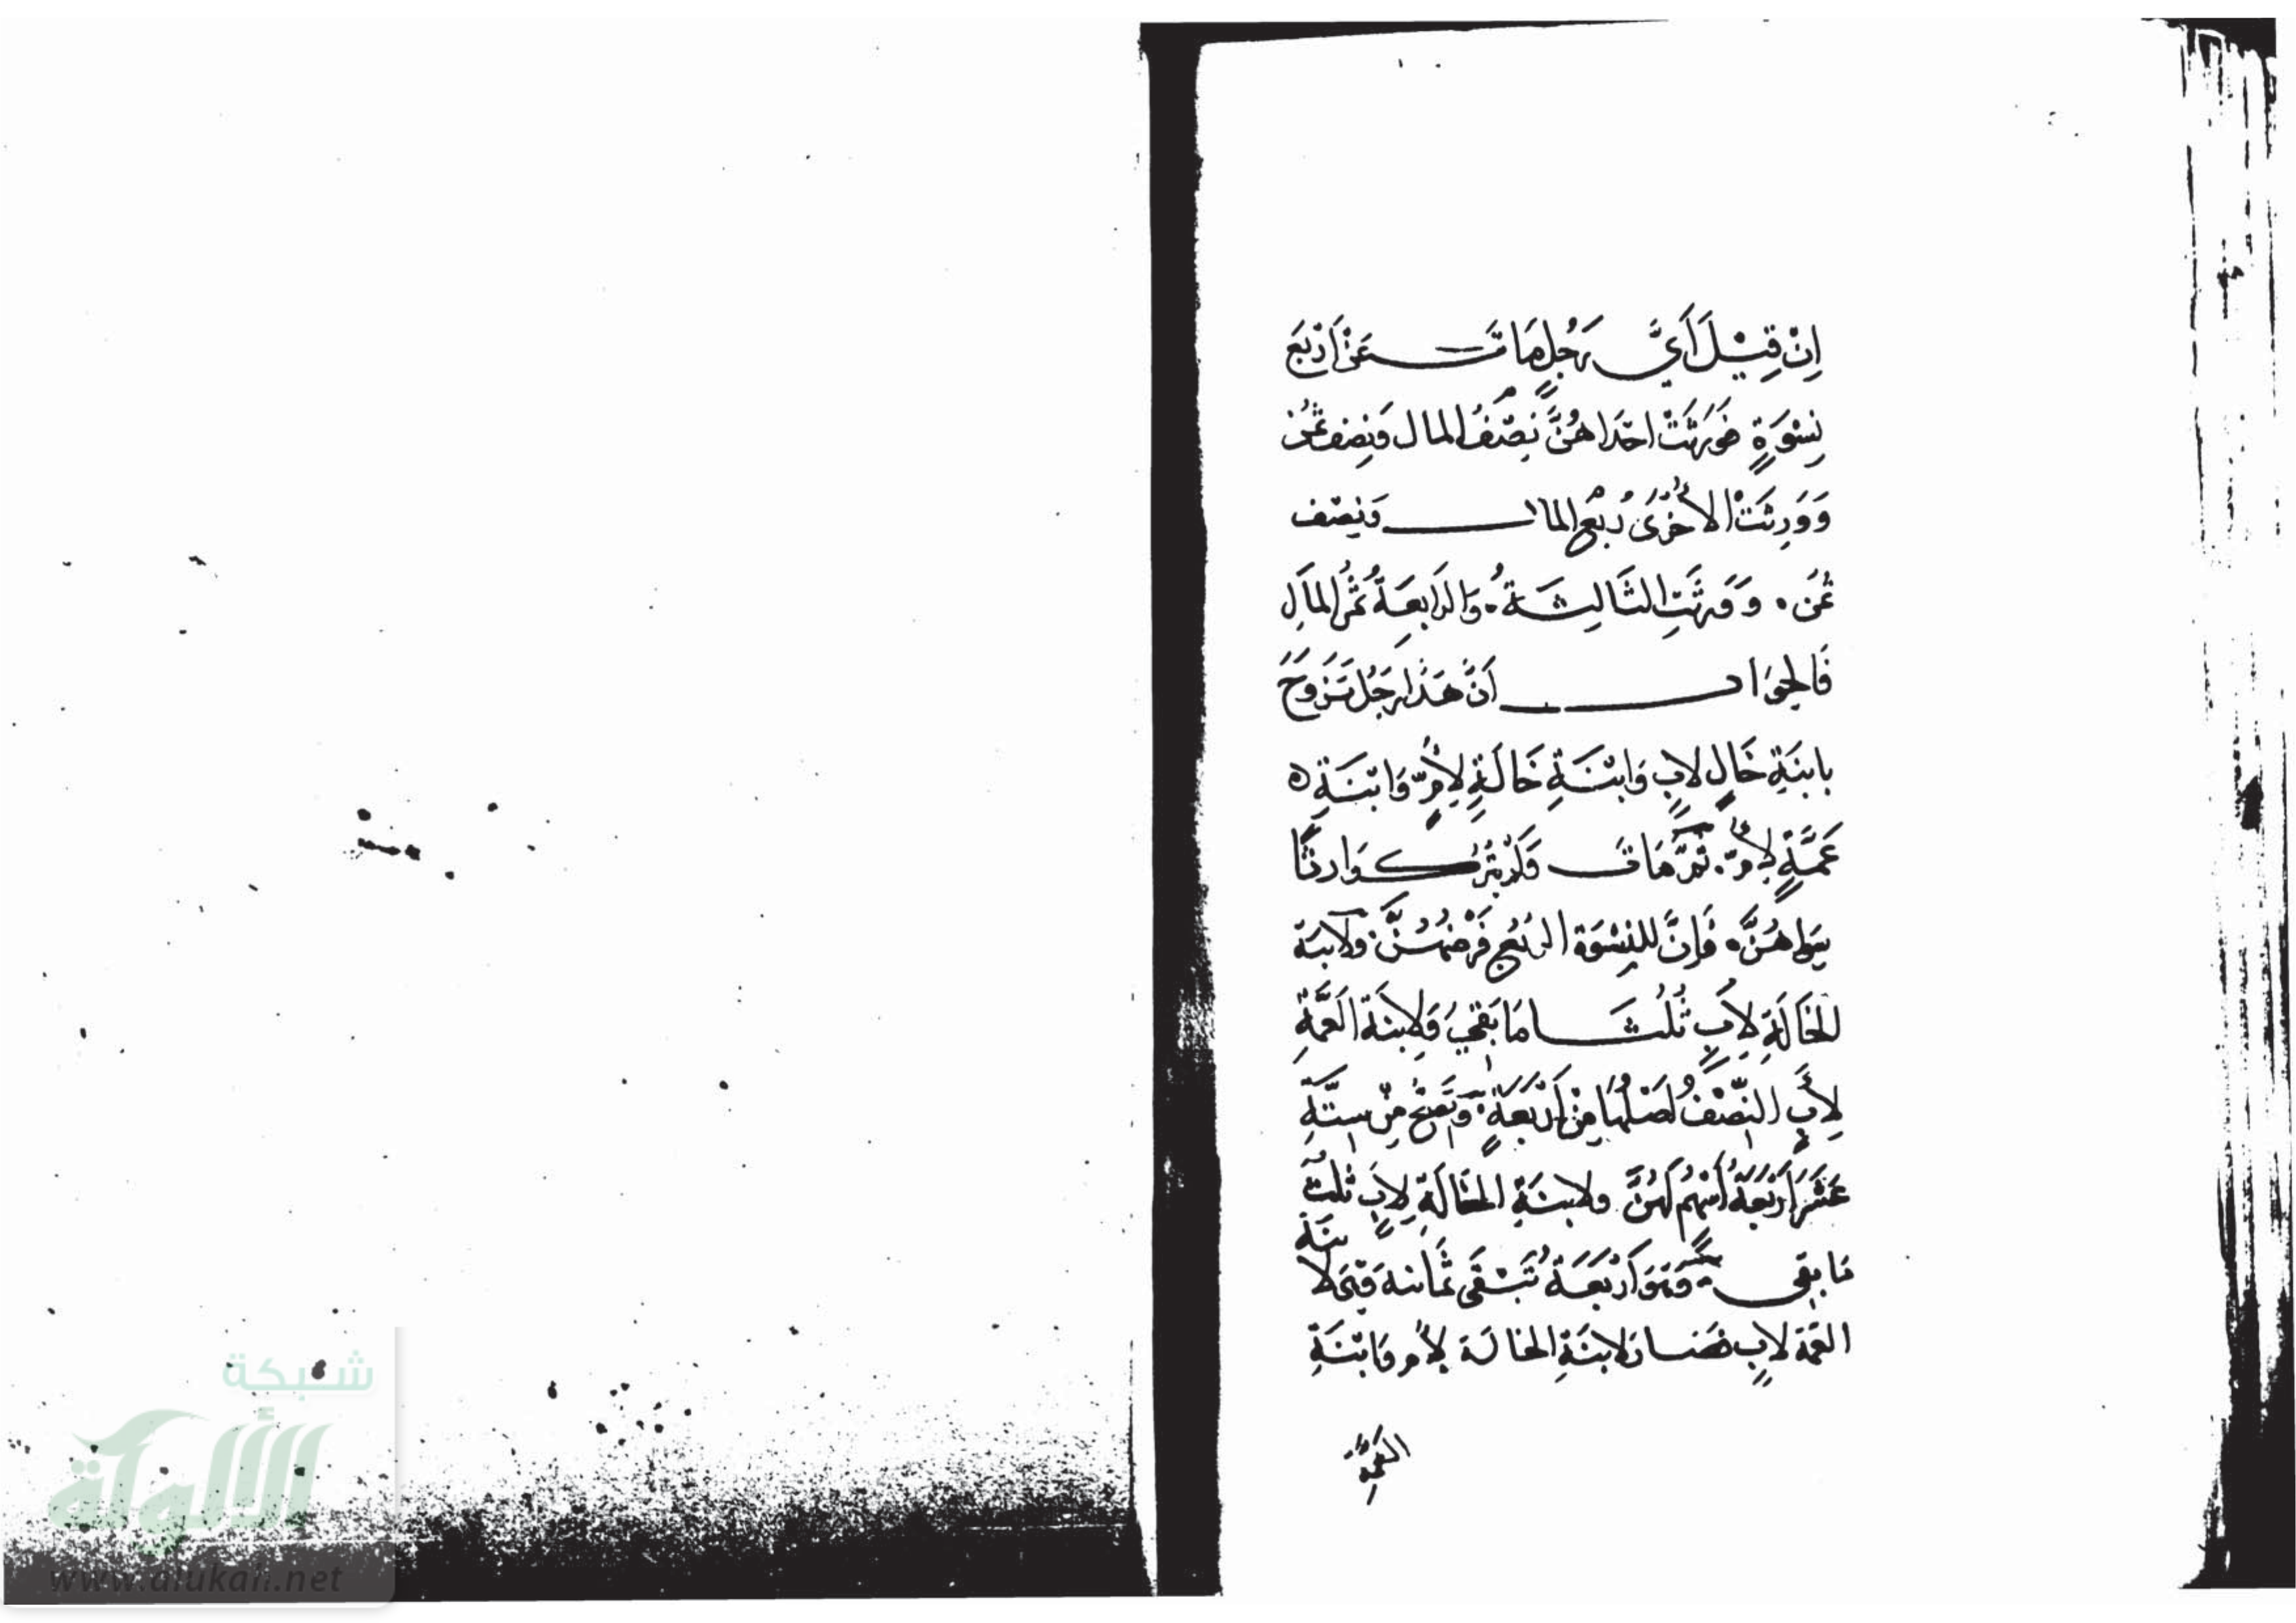 اِنْ قِيْلَ اَيَّ رَجُلٍ مَاتَ عَنْ اَرْبَعَ
نِسْوَةٍ فَوَرِثَتْ احْدَاهُنَّ نِصْفُ المال وَنِصْف ثُمُن
وَوَرِثَتْ الأُخْرَى رُبْعِ المال وَنِصْف
ثُمُنَ . وَوَرِثَتِ الثَّالِثَةُ . وَالرَابِعَةُ ثُمْنُ المَالِ
فَالجَوَاب اَنَّ هَذَا رَجُل تَزَوَّجَ
بابنَةِ خَالٍ لابٍ وَابْنَةِ خَالَةٍ لِأُمٍّ وَابْنَةِ ه
عَمَّةٍ لِأُمّ . ثمَّ مَاتَ وَلَمْ يَتْرُك وَارِثًا
سِوَاهُنَّ . فَإِنَّ للنِسْوَة الرُبُع فَرْضُهُنَّ . ولابنَة
الخَالَةِ لِأَبٍ ثُلُثَا مَا بَقِيَ وَلابنَة العَمَّةِ
لِأَبٍ النِّصْفُ أَصْلُهَا مِنْ اَرْبَعَةٍ . وَتَصِحُّ مِنْ سِتَّةِ
عَشَرَ اَرْبَعَةُ أَسْهُمٍ لَهُنَّ ولابنَةِ الخَالَةِ لِأَبٍ ثُلُث
مَا بقى . وَهوَ اَرْبَعَة تَبْقَى ثَمانيه وَهى لابنَة
العَمة لابٍ لابنَةِ الخالَة لأم وَابْنَةِ
العَمَّةِ
شبكة
الألوكة
www.alukah.net